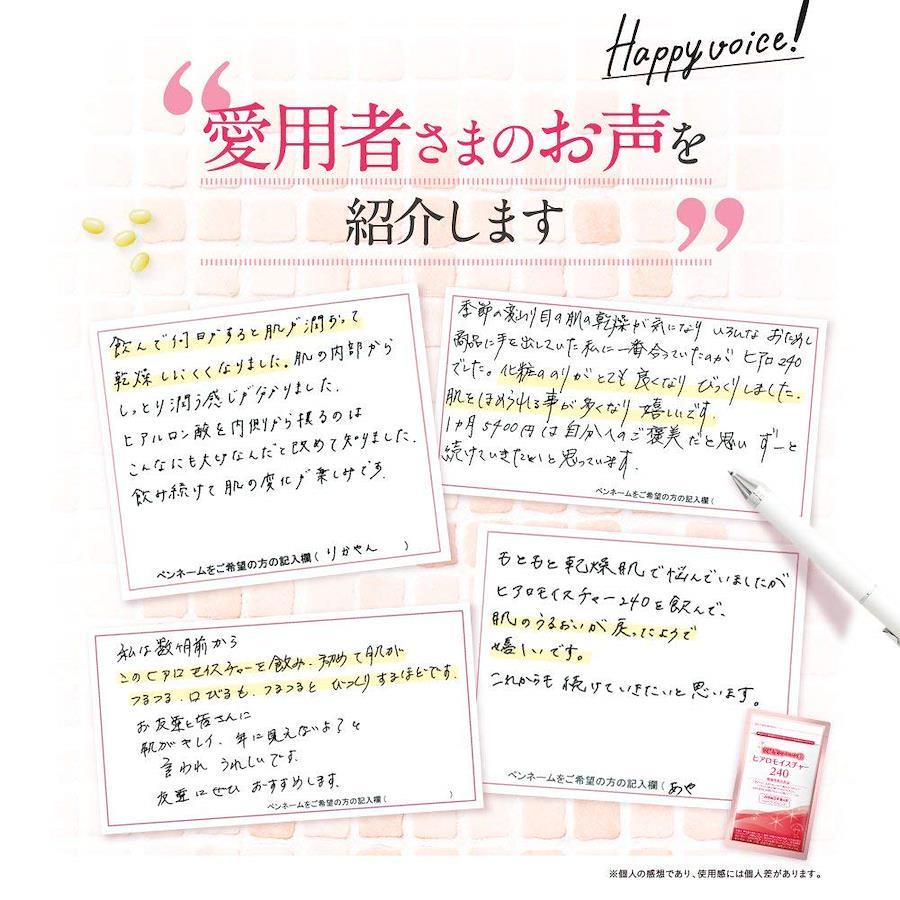 Happy voice!
“愛用者さまのお声を
紹介します”
飲んで何日かすると肌が潤おって
乾燥しにくくなりました。肌の内部から
しっとり潤う感じが分かりました。
ヒアルロン酸を内側から摂るのは
こんなにも大切なんだと改めて知りました。
飲み続けて肌の変化が楽しみです。
ペンネームをご希望の方の記入欄(りかやん)
季節の変わり目の肌の乾燥が気になり いろんな おためし
商品に手を出していた私に一番合っていたのが ヒアロ240
でした。化粧ののりがとても良くなり びっくりしました。
肌をほめられる事が多くなり 嬉しいです。
1ヵ月5400円は自分へのご褒美だと思い ずーと
続けていきたいと思っています。
ペンネームをご希望の方の記入欄(
私は数ヶ月前から
このヒアロモイスチャーを飲み、初めて肌が
つるつる、口びるも、つるつると びっくりするほどです。
お友達や皆さんに
肌がキレイ、年に見えないよ、と
言われ うれしいです。
友達にぜひ おすすめします。
ペンネームをご希望の方の記入欄( )
もともと乾燥肌で悩んでいましたが
ヒアロモイスチャー240を飲んで、
肌のうるおいが戻ったようで
嬉しいです。
これからも続けていきたいと思います。
ペンネームをご希望の方の記入欄(あや
ヒアロモイスチャー
240
※個人の感想であり、使用感には個人差があります。